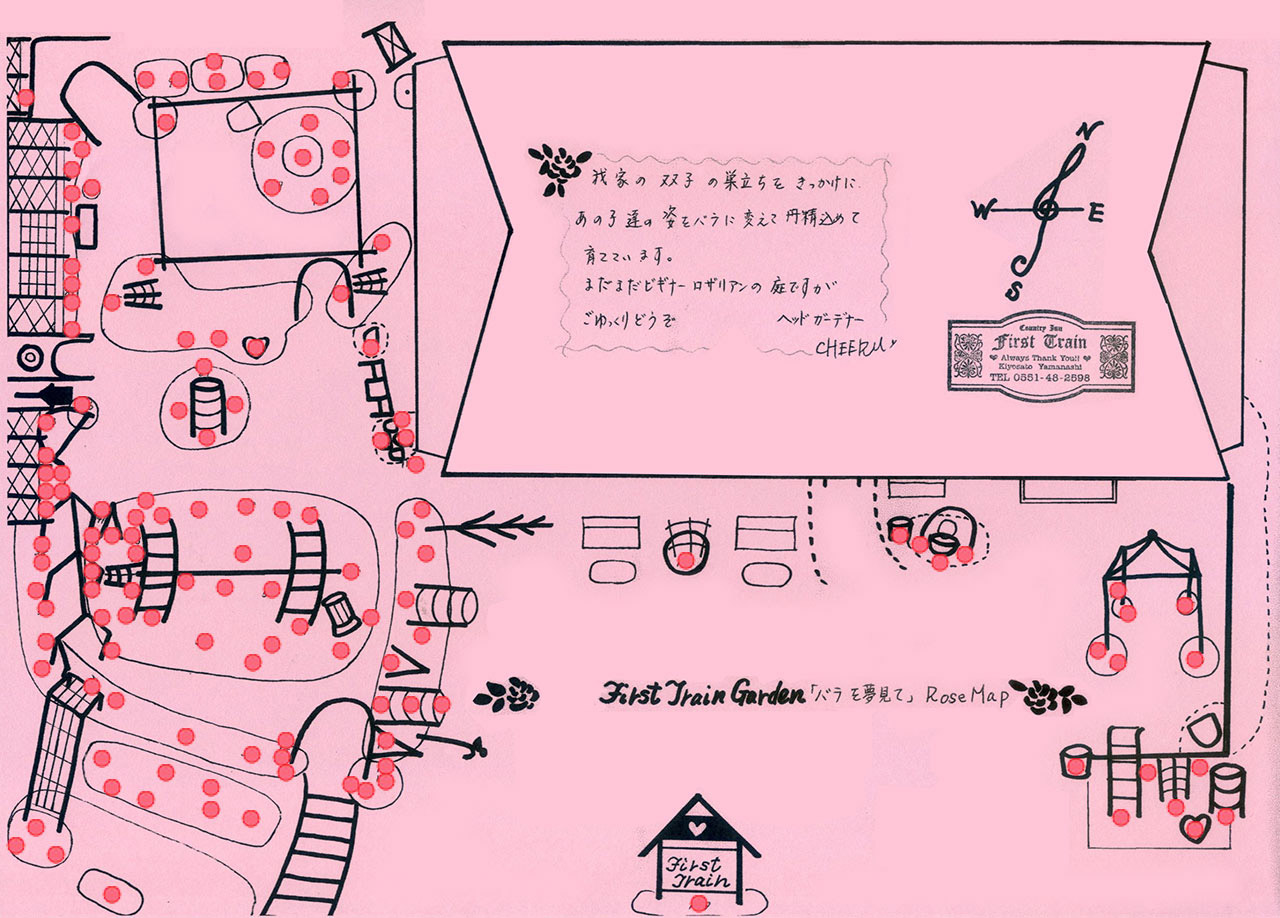 N
W E
S
我家の 双子 の巣立ちを きっかけに
あの子達の 姿をバラに変えて 丹精込めて
育てています。
まだまだビギナーロザリアンの 庭ですが
ごゆっくりどうぞ ヘッドガーデナー
CHEERU
Country Inn
First Train
♥ Always Thank You!! ♥
Kiyosato Yamanashi
TEL 0551-48-2598
First Train Garden「バラを夢見て」 Rose Map
First
Train